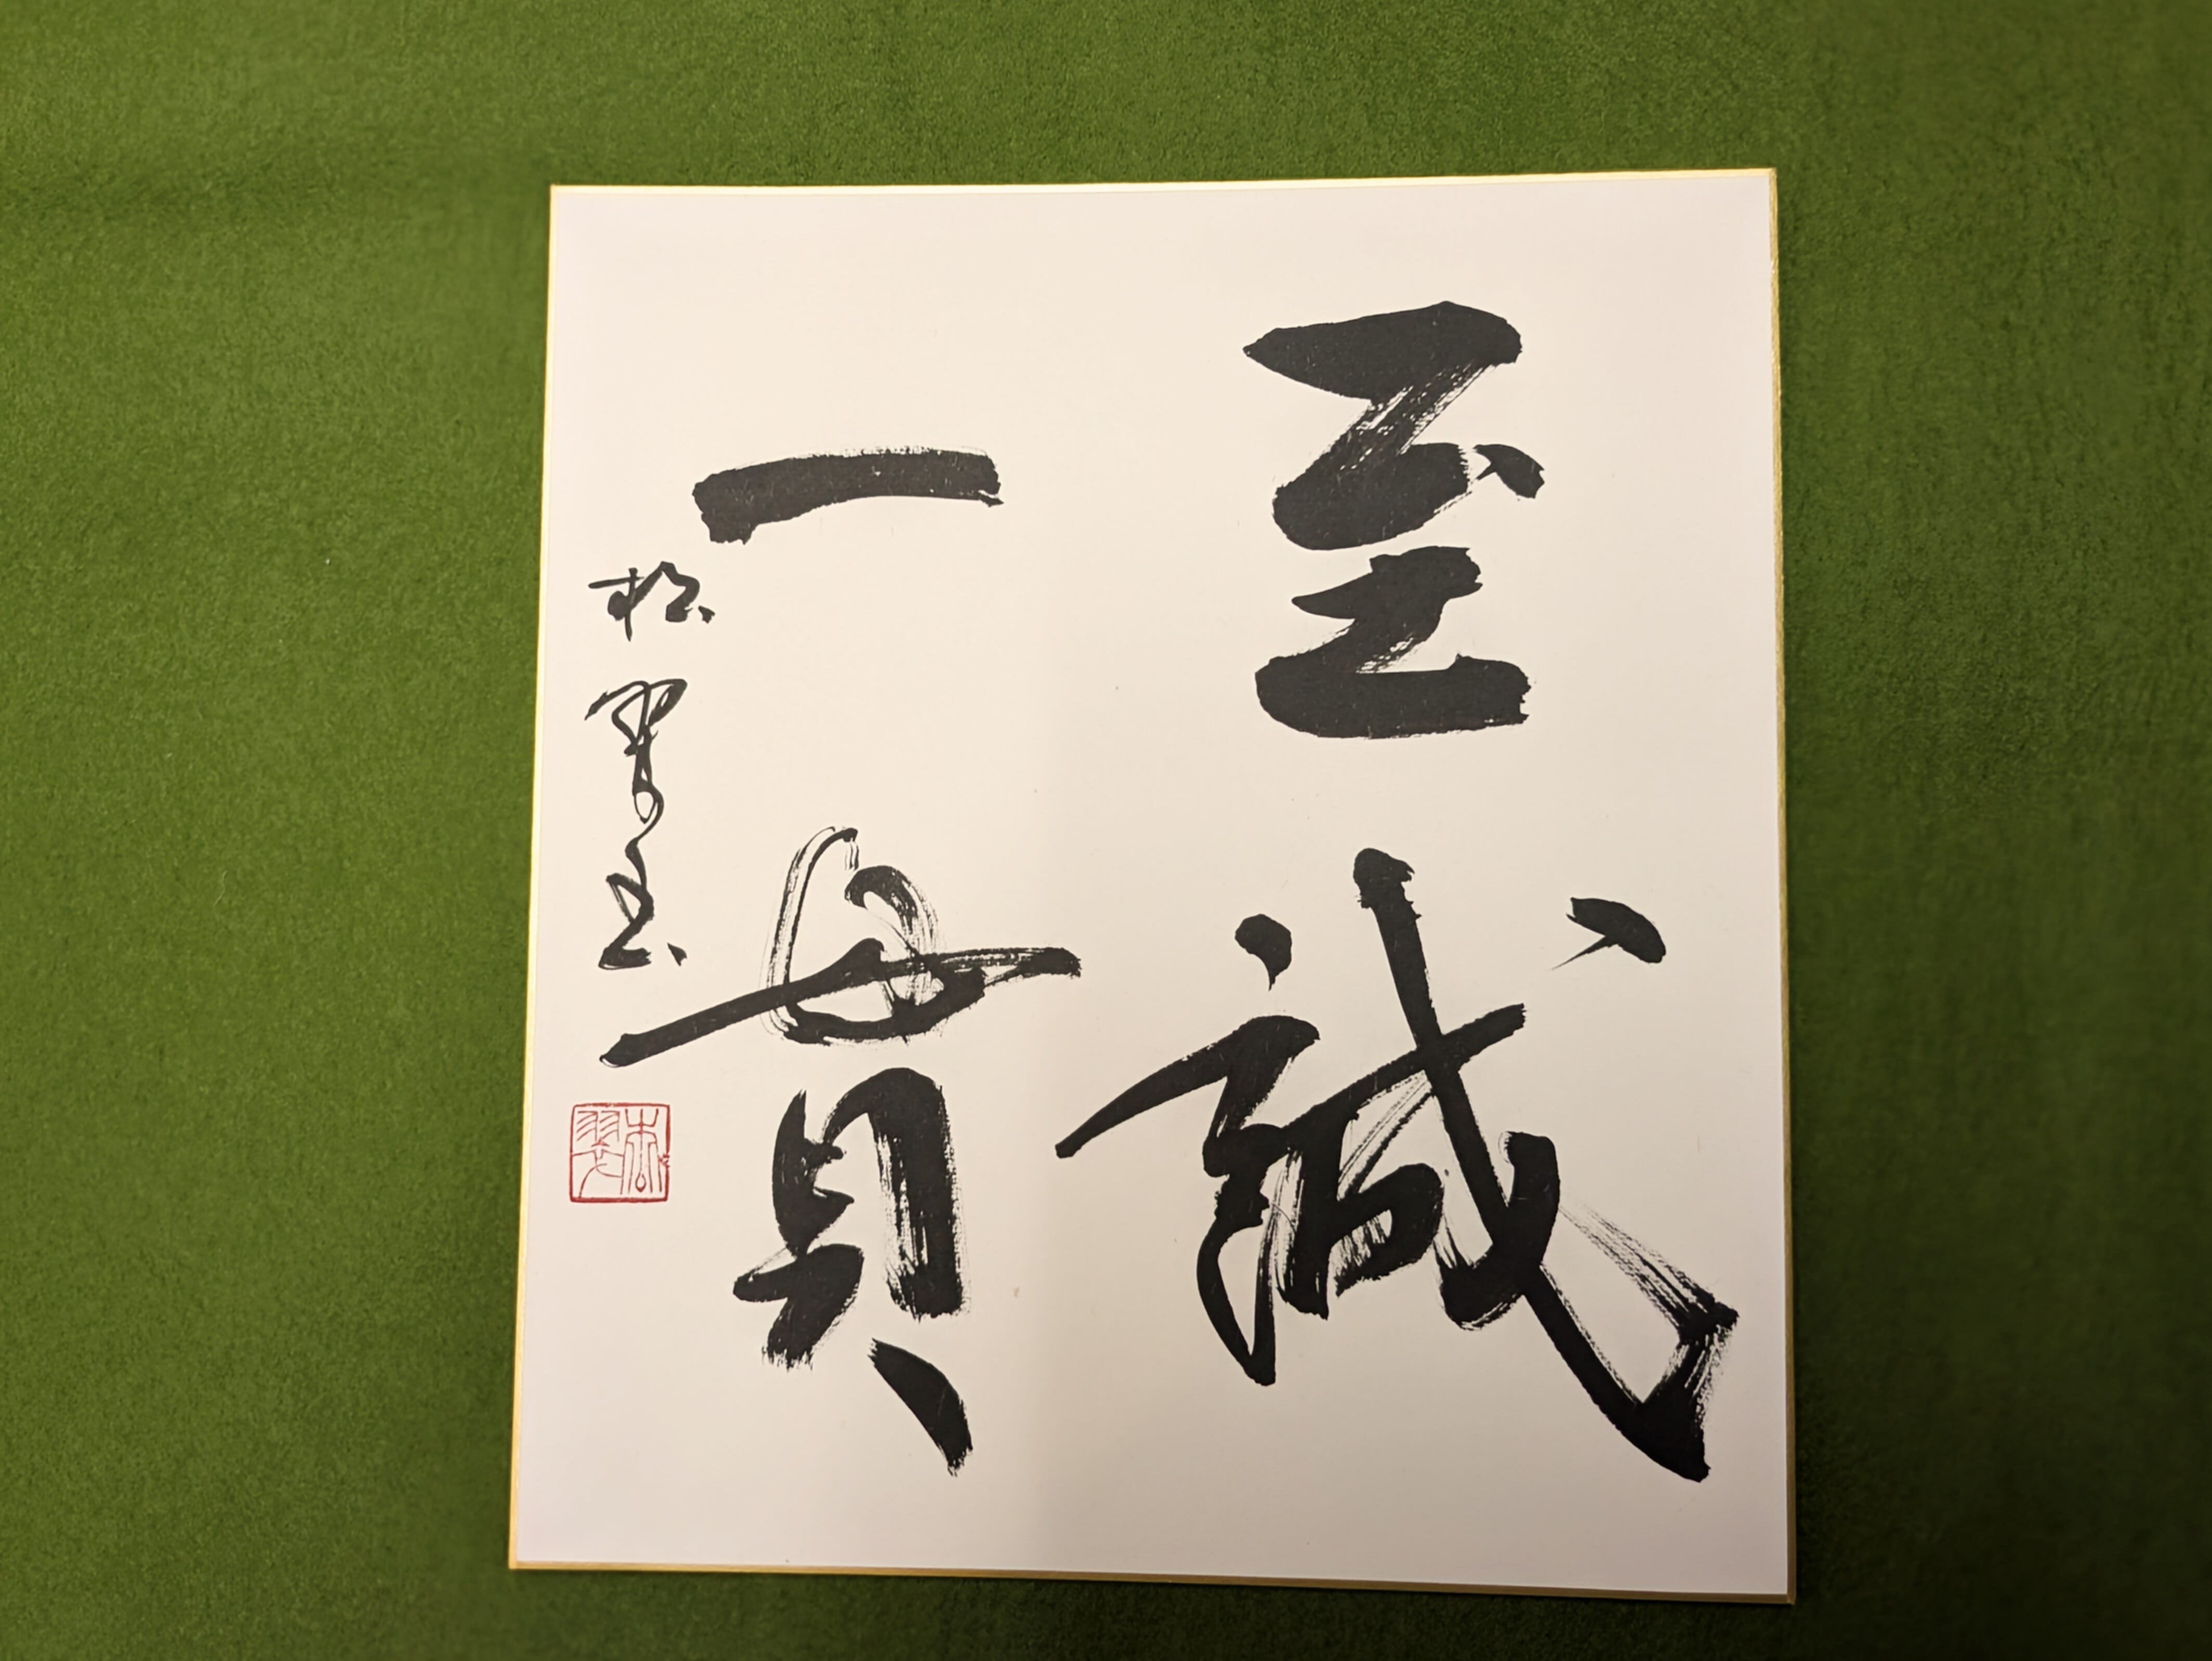 至誠
一貫
松翠書